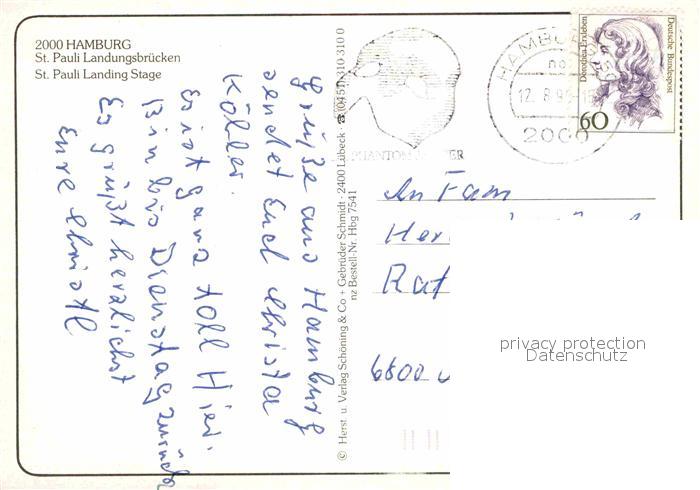 2000 HAMBURG
St. Pauli Landungsbrücken
St. Pauli Landing Stage
Grüße aus Hamburg
sendet Euch Christa
Köhler.
Es ist ganz toll hier.
Bin bis Dienstag zurück
Es grüßt herzlichst
Eure Christl
© Herst. u. Verlag Schöning & Co + Gebrüder Schmidt · 2400 Lübeck · ☎ (0451) 310 310 0
nz Bestell-Nr. Hbg 7541
PHANTOM
HAMBURG
12. 8. 9
2000
Dorothea Erxleben
Deutsche Bundespost
60
An Fam
Her
Rat
6800
privacy protection
Datenschutz